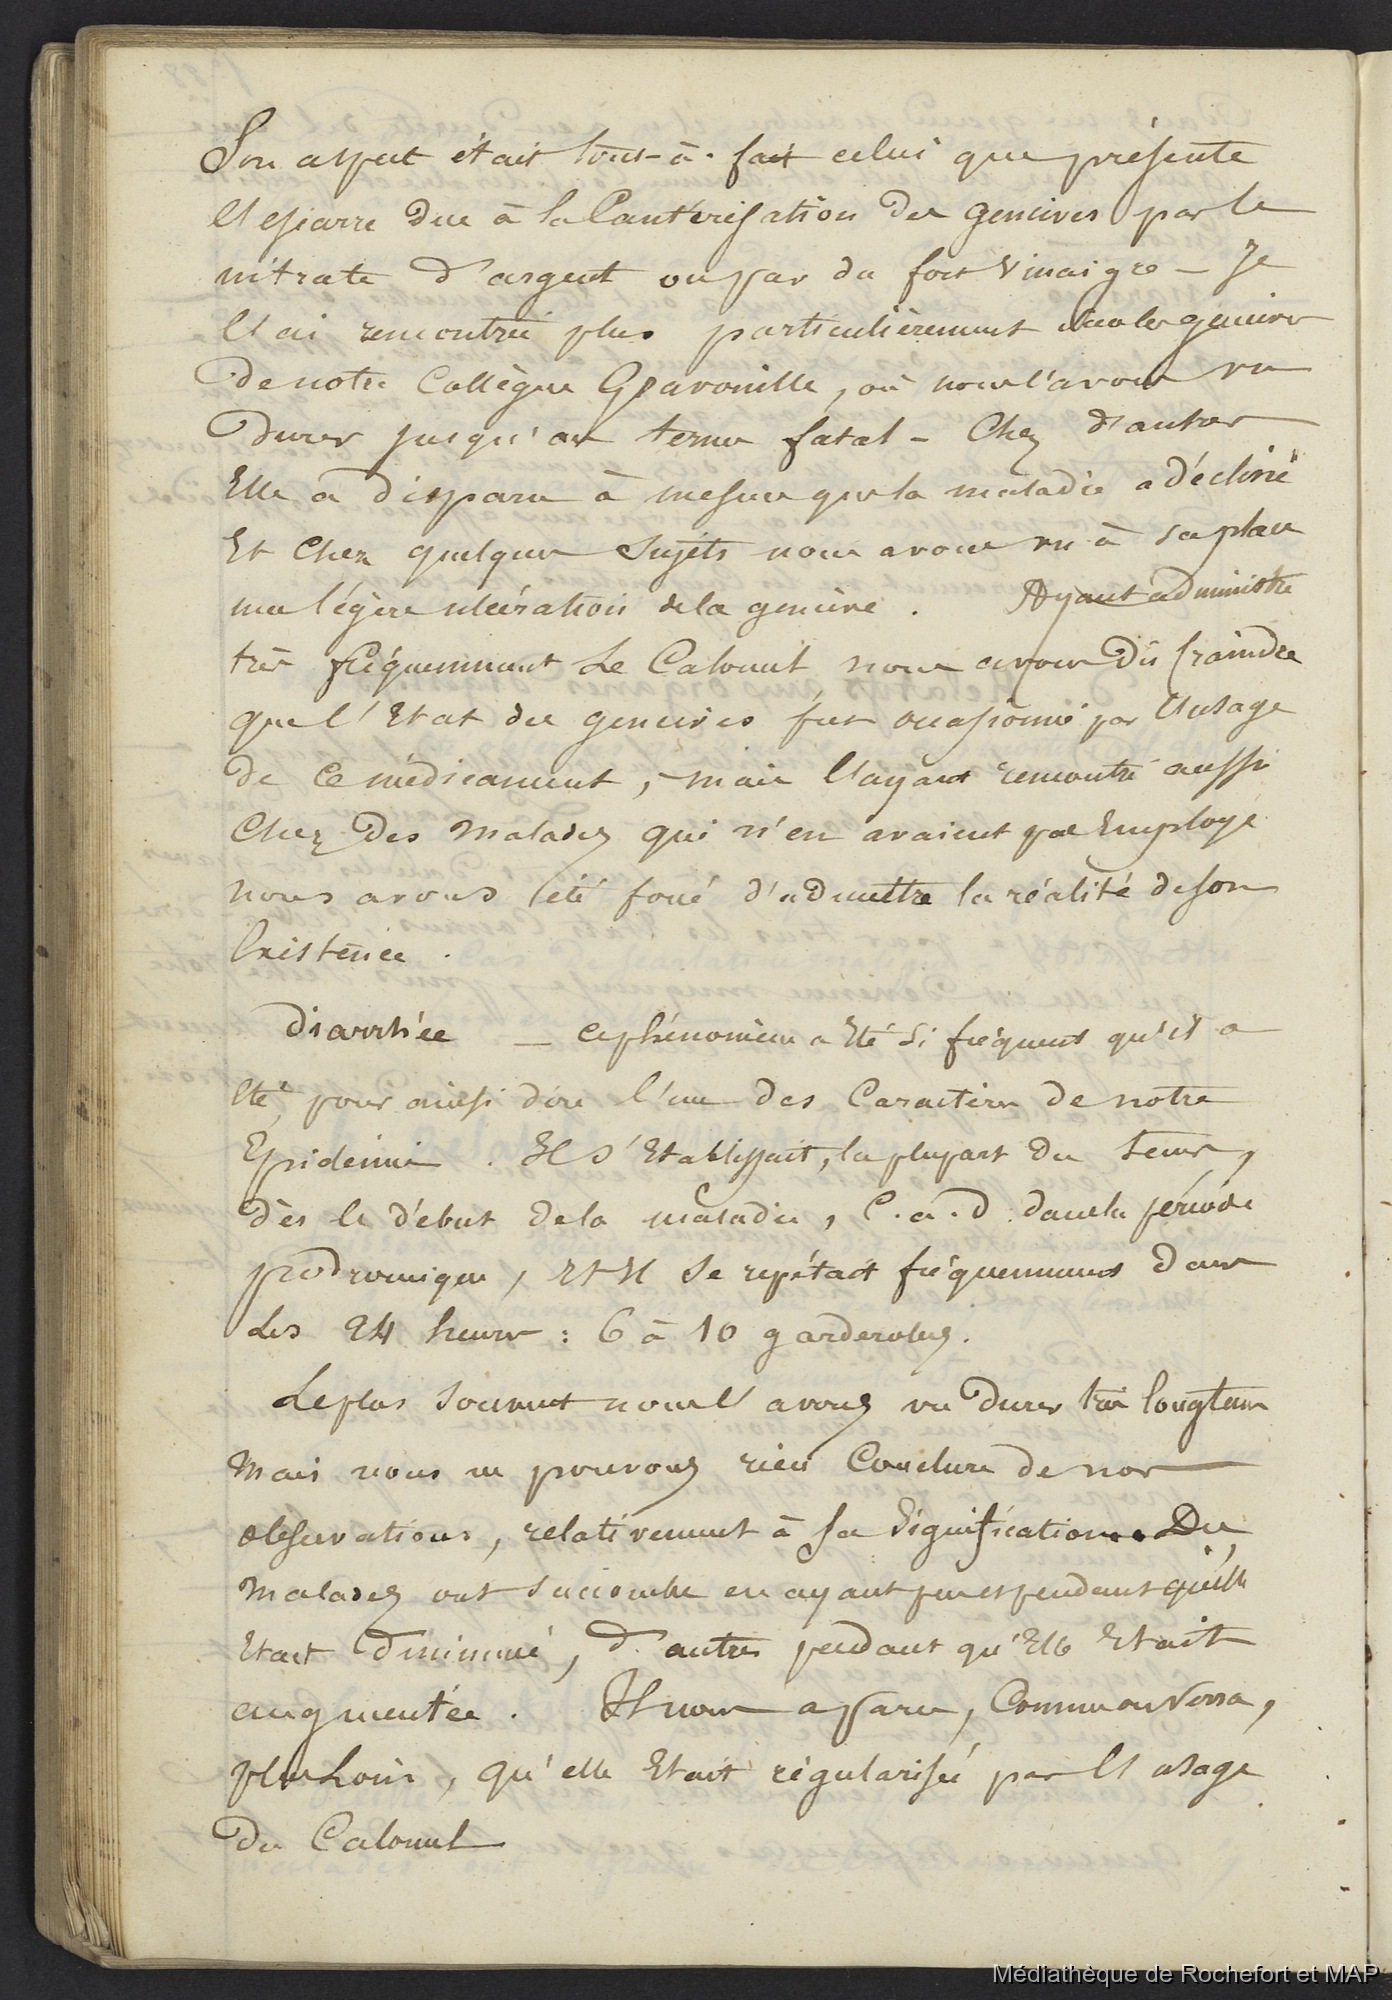 Son aspect était tout-à-fait celui que présente
l'escarre due à la Cautérisation des gencives par le
nitrate d'argent ou par du fort vinaigre — Je
l'ai rencontrée plus particulièrement dans les gencives
de notre Collègue , où nous l'avons vu
durer jusqu'au terme fatal — Chez d'autres
Elle a disparu à mesure que la maladie a décliné
Et Chez quelques Sujets nous avons vu à sa place
une légère ulcération de la gencive . Ayant administré
très fréquemment Le Calomel nous avons dû Craindre
que l'Etat des gencives fut occasionné par l'usage
de Ce médicament , mais l'ayant rencontré aussi
Chez des Malades qui n'en avaient pas Employé
nous avons été forcé d'admettre la réalité de son
Existence .
Diarrhée — ce phénomène a Eté si fréquent qu'il a
Eté, pour ainsi dire l'un des Caractères de notre
Epidémie . Il s'Etablissait, la plupart du tems,
dès le début de la maladie, C.à.d. dans la période
prodromique, Et Il se repétait fréquemment dans
Les 24 heures : 6 à 10 garderobes.
Le plus souvent nous l'avons vu Durer très longtems
Mais nous ne pouvons rien Conclure de nos
observations, relativement à sa signification. Des
Malades ont succombé en ayant peu et pendant qu'Elle
Etait diminué, d'autres pendant qu'Elle Etait
augmentée . Il nous a paru, Comme on verra,
plus Loin, qu'elle Etait régularisée par l'usage
du Calomel
Médiathèque de Rochefort et MAP